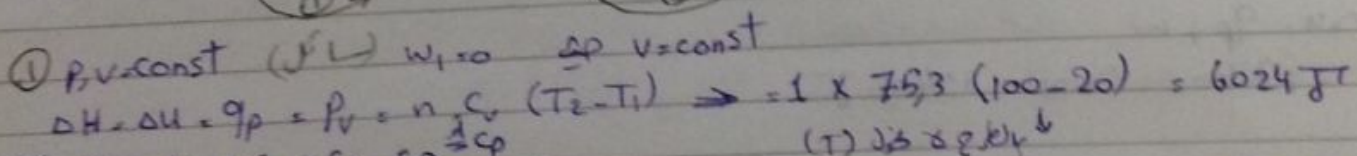 ① P,V=const (سائل) W₁=0 ⇒ V=const
ΔH=ΔU=qp=Pv=n Cv (T₂-T₁) ⇒ =1 × 75,3 (100-20) = 6024 J
≃Cp (T)